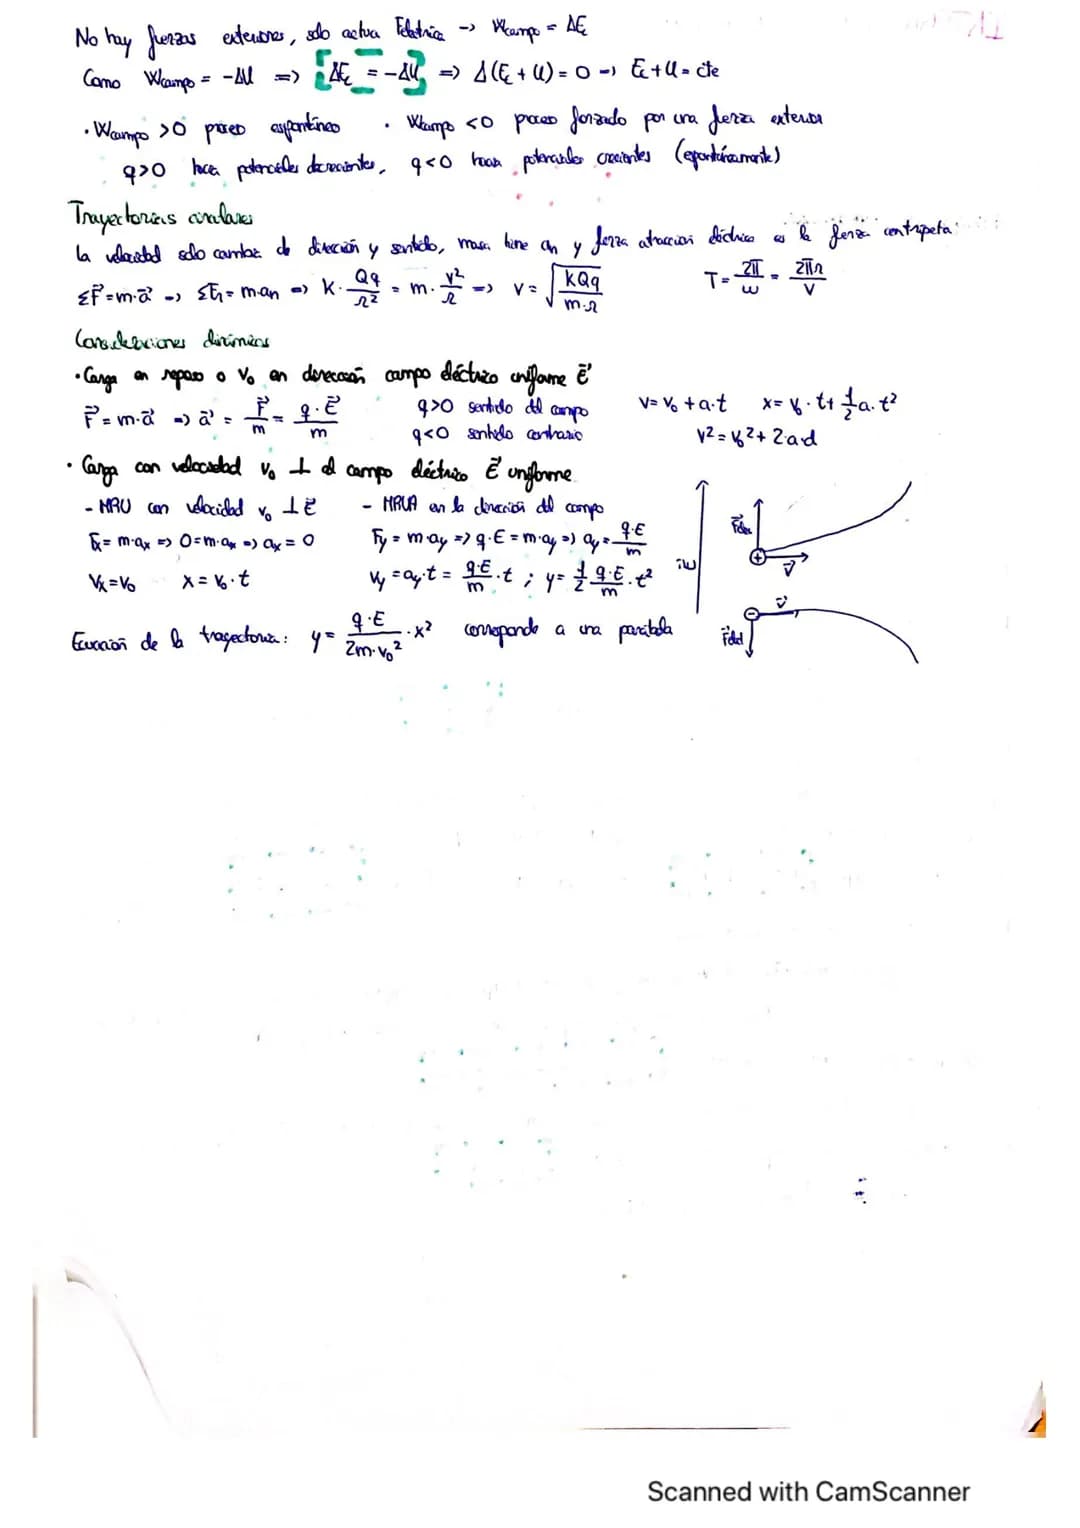 No hay fuerzas exteriores, solo actua Felectrica -> Wcampo = ΔEc
Como Wcampo = -ΔU => [ΔEc = -ΔU] => Δ(Ec + U) = 0 -> Ec + U = cte
· Wcampo > 0 proceso espontáneo · Wcampo < 0 proceso forzado por una fuerza exterior
q>0 hacia potenciales decrecientes, q<0 hacia potenciales crecientes (espontáneamente)
Trayectorias circulares
la velocidad solo cambia de dirección y sentido, masa tiene an y fuerza atraccion eléctrica es la fuerza centrípeta:
ΣF⃗ = m·a⃗ -> ΣFn = m·an => K·Qq/r² = m·v²/r => v = √(KQq/m·r) T = 2π/ω = 2πr/v
Consideraciones dinámicas
· Carga en reposo o v₀ en dirección campo eléctrico uniforme E⃗
F⃗ = m·a⃗ => a⃗ = F⃗/m = q·E⃗/m q>0 sentido del campo v = v₀ + a·t x = v₀·t + ½a·t²
q<0 sentido contrario v² = v₀² + 2·a·d
· Carga con velocidad v₀ ⊥ al campo eléctrico E⃗ uniforme
- MRU con velocidad v₀ ⊥ E⃗ - MRUA en la dirección del campo
Fx = m·ax => 0 = m·ax => ax = 0 Fy = m·ay => q·E = m·ay => ay = q·E/m
Vx = V₀ x = v₀·t Vy = ay·t = q·E/m·t ; y = ½ q·E/m·t²
Ecuación de la trayectoria: y = q·E/2m·v₀² · x² corresponde a una parábola
E⃗
F⃗elec
+
v⃗
-
v⃗
F⃗elect
Scanned with CamScanner